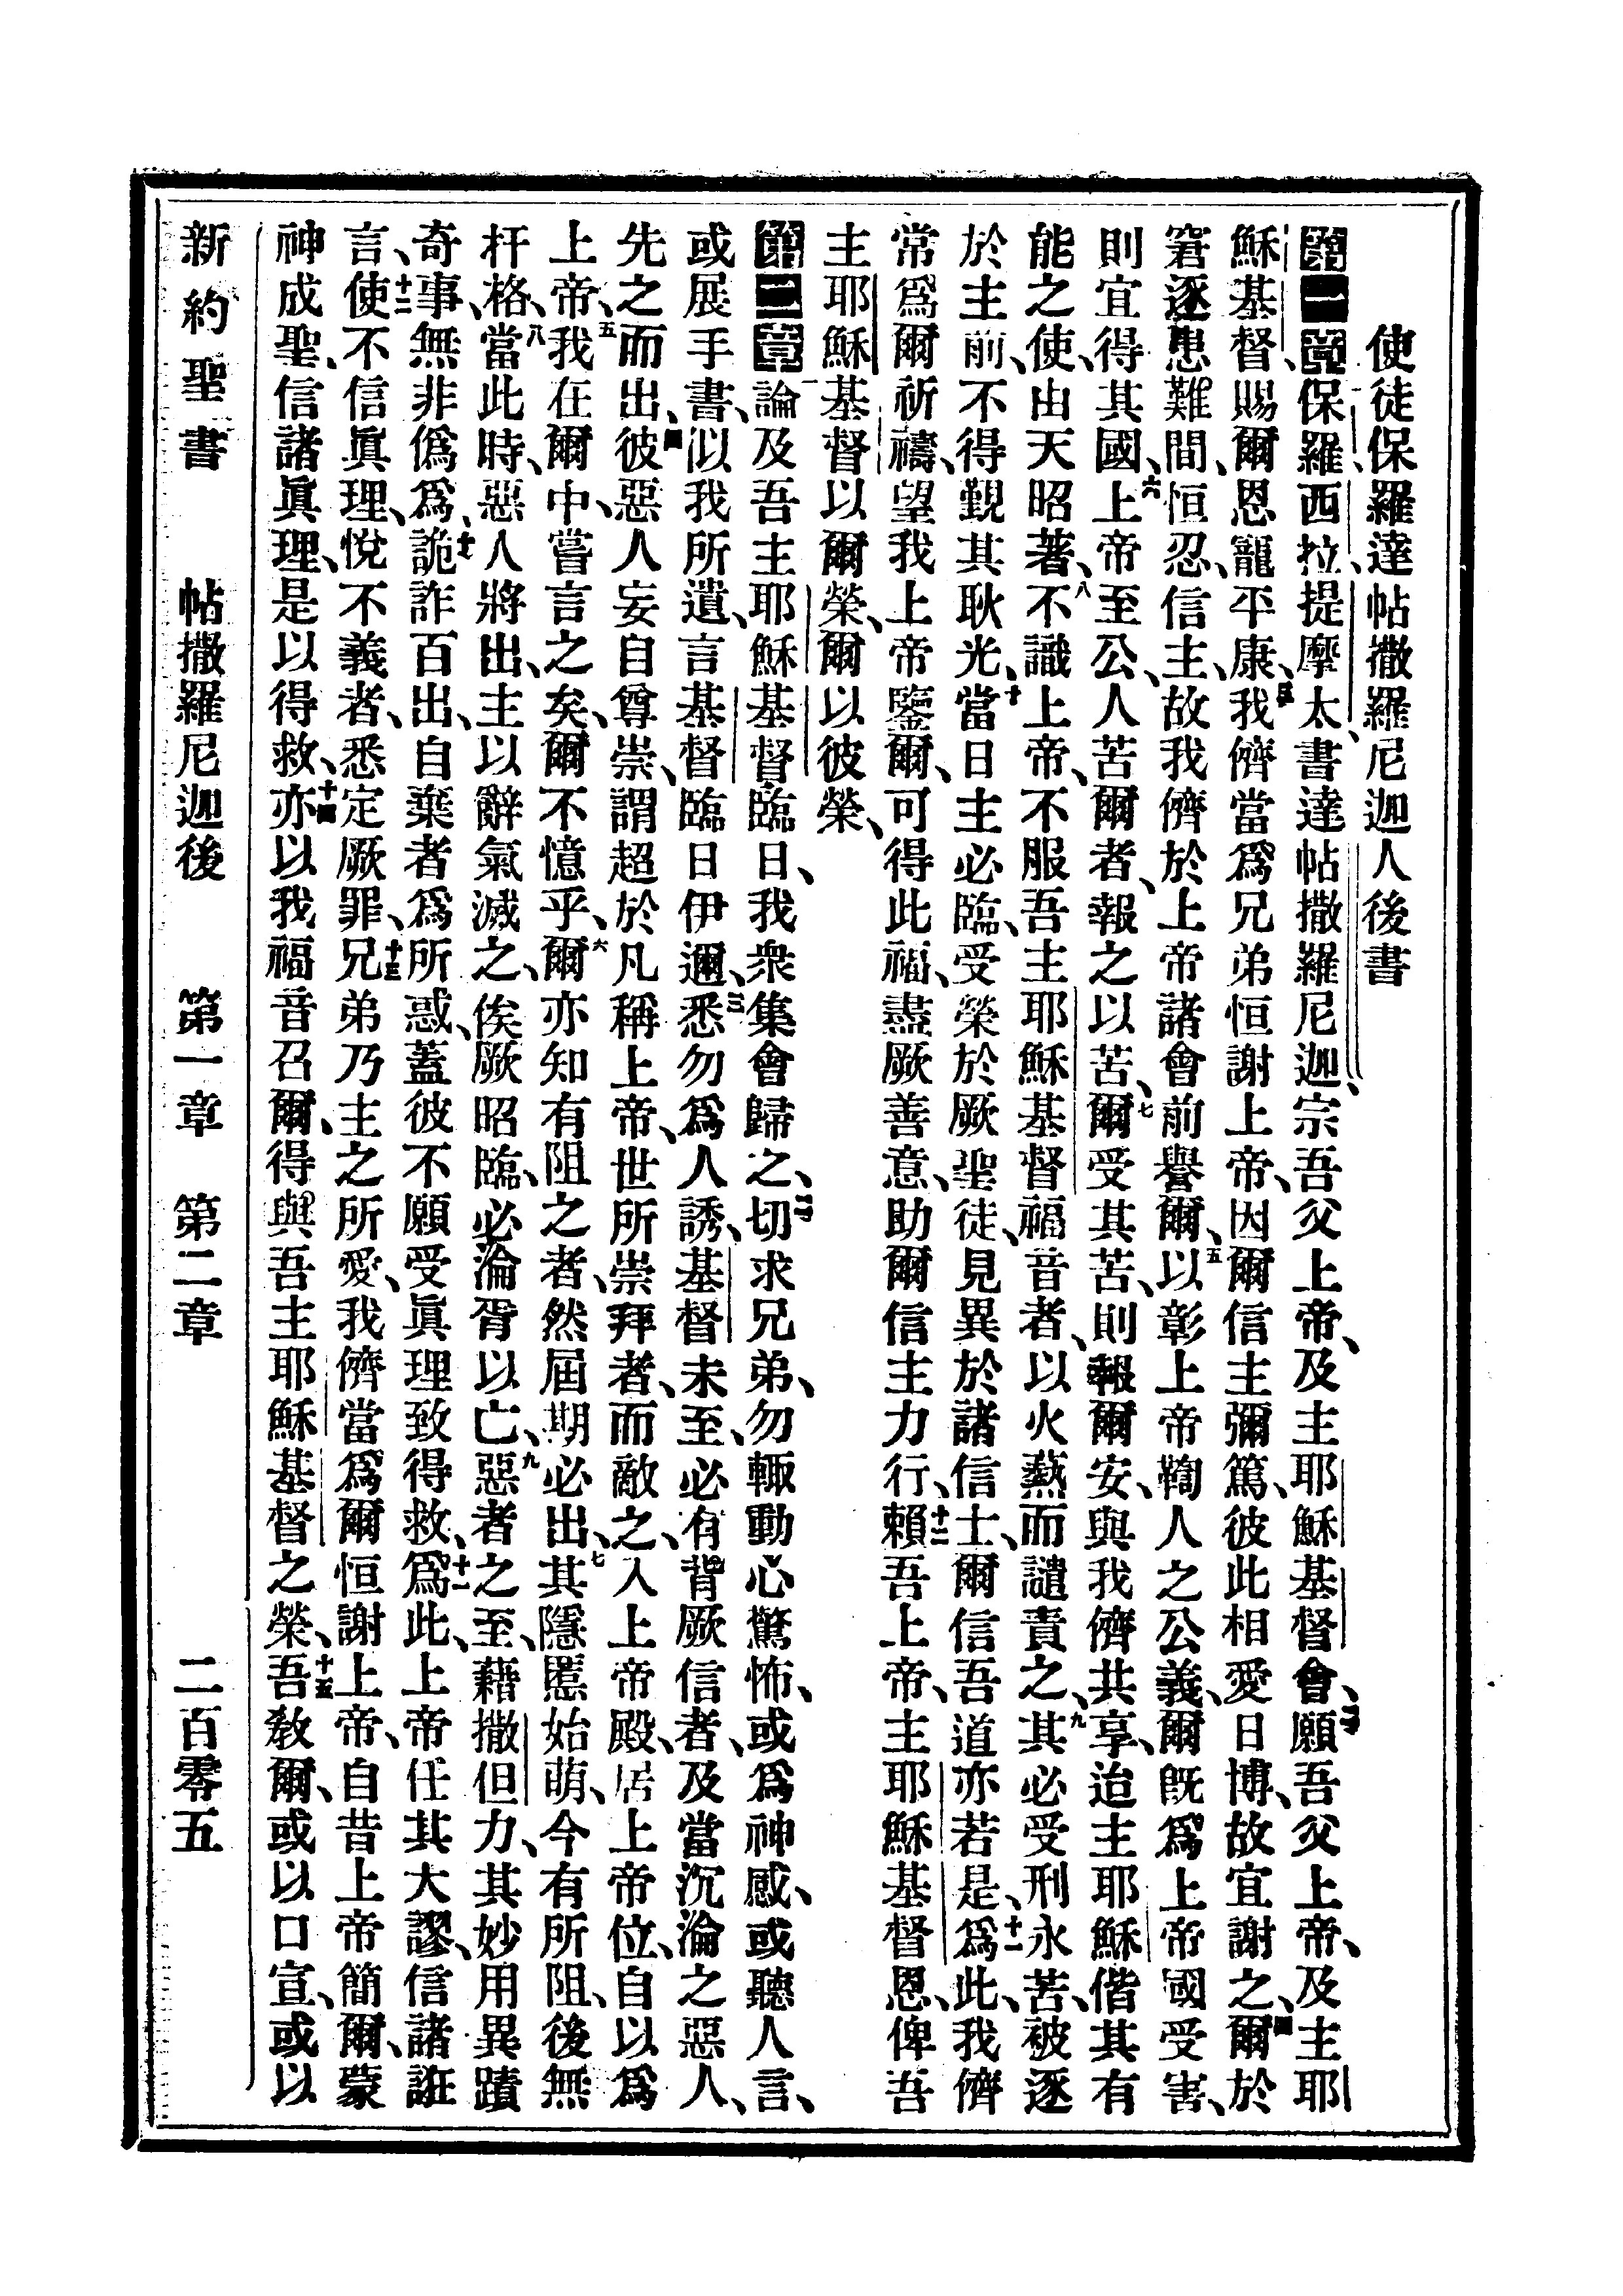 使徒保羅達帖撒羅尼迦人後書
第一章保羅、西拉、提摩太、書達帖撒羅尼迦、宗吾父上帝、及主耶穌基督會、二願吾父上帝、及主耶
穌基督、賜爾恩寵平康、三我儕當爲兄弟恒謝上帝、因爾信主彌篤、彼此相愛日博、故宜謝之、四爾於
窘逐患難間、恒忍、信主、故我儕於上帝諸會前譽爾、五以彰上帝鞫人之公義、爾旣爲上帝國受害、
則宜得其國、六上帝至公、人苦爾者、報之以苦、七爾受其苦、則報爾安、與我儕共享、迨主耶穌偕其有
能之使、由天昭著、八不識上帝、不服吾主耶穌基督福音者、以火爇而譴責之、九其必受刑永苦、被逐
於主前、不得覲其耿光、十當日主必臨、受榮於厥聖徒、見異於諸信士、爾信吾道亦若是、十一爲此、我儕
常爲爾祈禱、望我上帝鑒爾、可得此福、盡厥善意、助爾信主力行、十二賴吾上帝、主耶穌基督恩、俾吾
主耶穌基督以爾榮、爾以彼榮、
第二章一論及吾主耶穌基督臨日、我衆集會歸之、二切求兄弟、勿輒動心驚怖、或爲神感、或聽人言、
或展手書、似我所遺、言基督臨日伊邇、三悉勿爲人誘、基督未至、必有背厥信者、及當沉淪之惡人、
先之而出、四彼惡人妄自尊崇、謂超於凡稱上帝、世所崇拜者、而敵之、入上帝殿、居上帝位、自以爲
上帝、五我在爾中、嘗言之矣、爾不憶乎、六爾亦知有阻之者、然屆期必出、七其隱慝始萌、今有所阻、後無
扞格、八當此時、惡人將出、主以辭氣滅之、俟厥昭臨、必淪胥以亡、九惡者之至、藉撒但力、其妙用異蹟
奇事、無非僞爲、十詭詐百出、自棄者爲所惑、蓋彼不願受眞理致得救、十一爲此、上帝任其大謬、信諸誑
言、十二使不信眞理、悅不義者、悉定厥罪、十三兄弟乃主之所愛、我儕當爲爾恒謝上帝、自昔上帝簡爾、蒙
神成聖、信諸眞理、是以得救、十四亦以我福音召爾、得與吾主耶穌基督之榮、十五吾敎爾、或以口宣、或以
新約聖書　帖撒羅尼迦後　第一章　第二章　二百零五